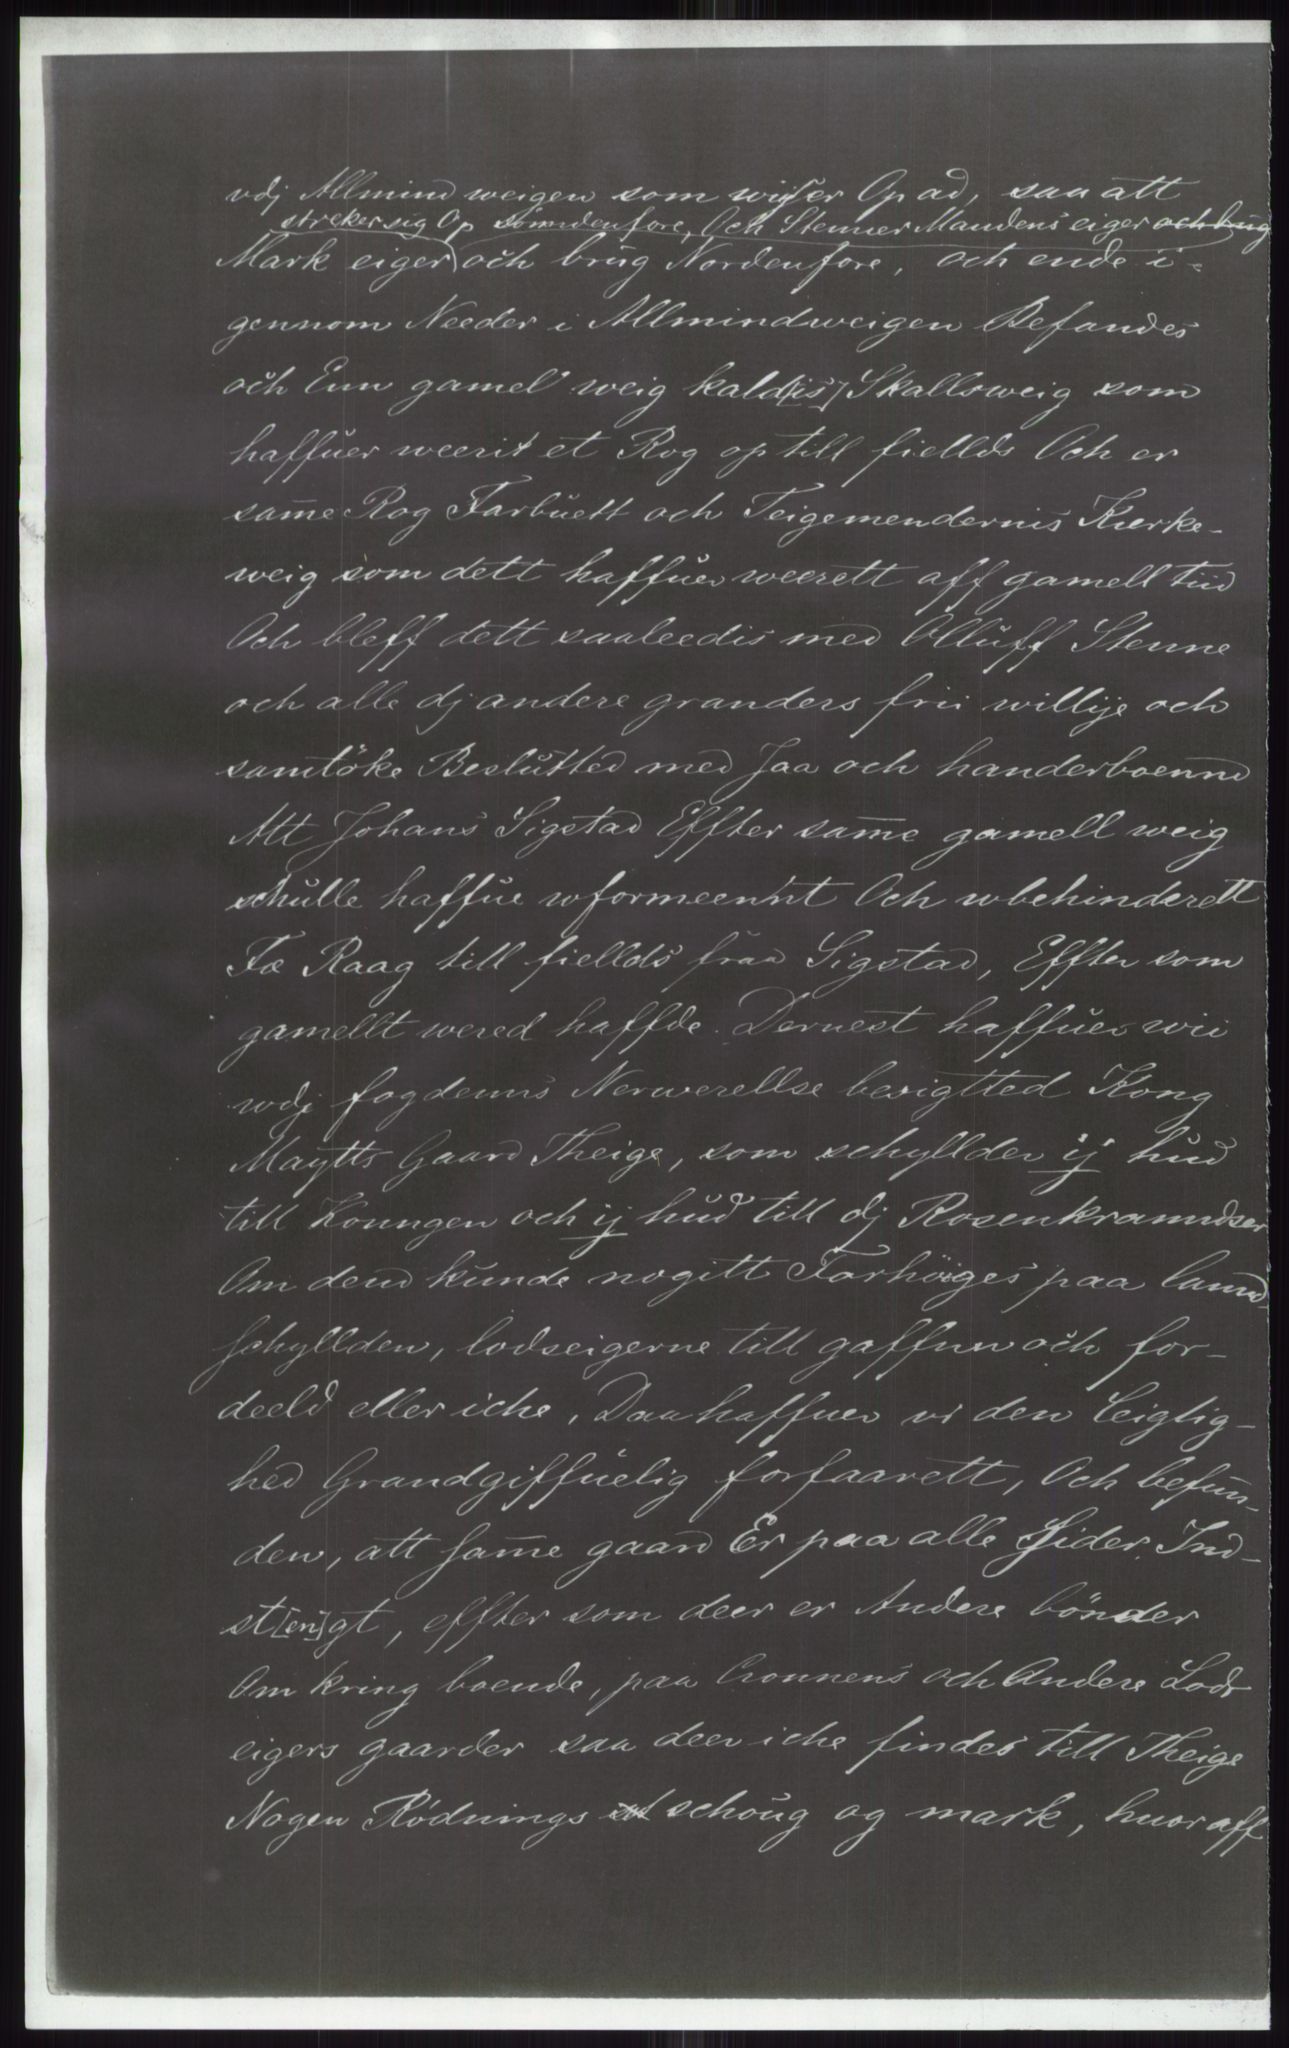 vdj Allmind weigen som wiiser Op ad, saa att
streker sig Op sönndenfore, Och Stenner Mandens eiger och brug
Mark eiger och brug Nordenfore, och ende i-
gennom Needer i Allmindweigen Befandes
och Enn gamel weig kald[is] Skallsweig som
haffuer weerit et Rog op till fiellds Och er
same Rog Farbuett och Teigemendernis Kierke-
weig som dett haffuer weerett aff gamell tiid
Och bleff dett saaleedis med Olluff Stenne
och alle dj andere granders frii willije och
samtöke Beslutted med Jaa och handerboennd
Att Johans Sigstad Effter same gamell weig
schulle haffue wformeennt Och wbehinderett
Fæ Raag till fiellds fraa Sigstad, Effter som
gamellt wered haffde. Dernest haffuer wii
wdj fogdenns Nerwerellse besigtted Kong
Maytts Gaard Theige, som schyllder ij hud
till Konngen och ij hud till dj Rosenkranndser
Om dend kunde nogitt Forhöiges paa lannd-
schyllden, lodseigerne till gaffnn och for-
deeld eller iche, Daa haffuer vi den Leiglig-
hed Grandgiffuelig forfaarett, Och befun-
den, att same gaard Er paa alle Sider Ind-
st[en]gt, effter som deer er Andere bönder
Om kring boende, paa Cronnens och Andere Lods
eigers gaarder saa deer iche findes till Theige
Nogen Rödnings schoug og mark, huor aff